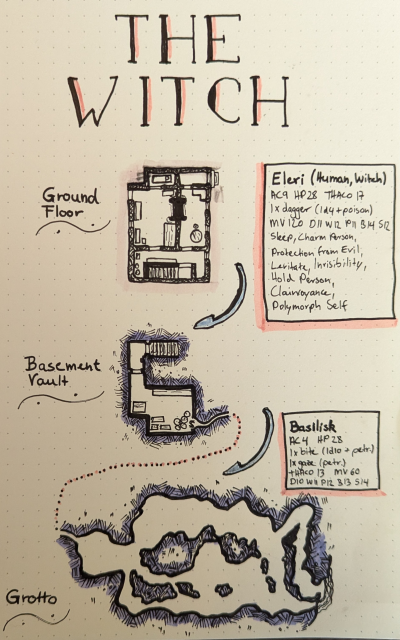 THE
WITCH
Ground
Floor
Eleri (Human, Witch)
AC9 HP28 THAC0 17
1x dagger (1d4+poison)
MV 120 D11 W12 P11 B14 S12
Sleep, Charm Person,
Protection from Evil,
Levitate, Invisibility,
Hold Person,
Clairvoyance,
Polymorph Self
Basement
Vault
Basilisk
AC4 HP28
1x bite (1d10 + petr.)
1x gaze (petr.)
THAC0 13 MV 60
D10 W11 P12 B13 S14
Grotto